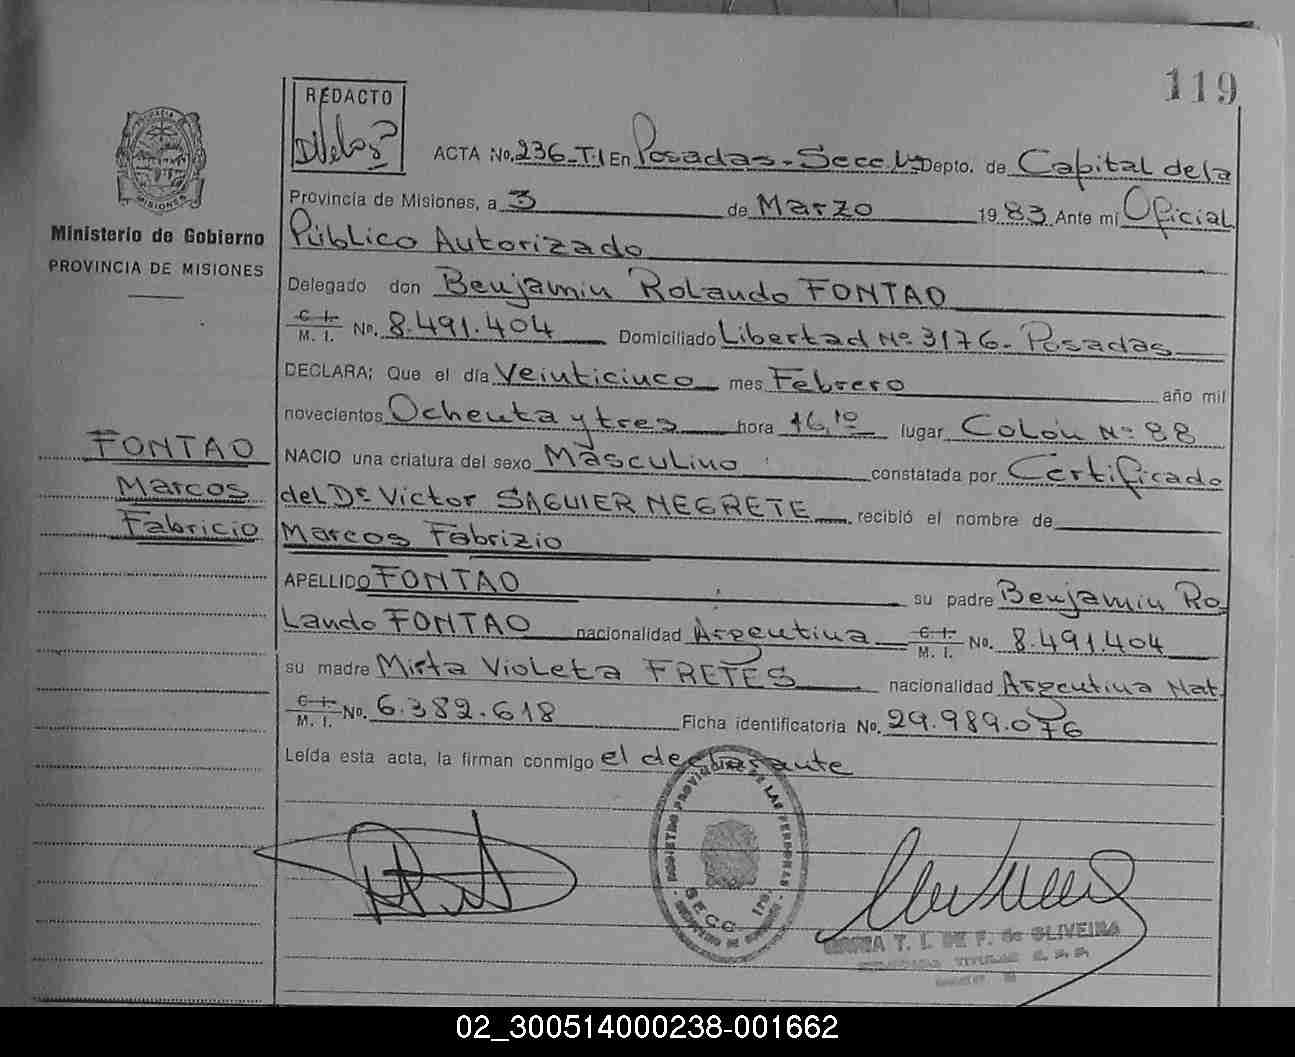 119
REDACTO
ACTA No. 236-T.I En Posadas-Secc. 1ª Depto. de Capital de la
Provincia de Misiones, a 3 de Marzo 1983 Ante mi Oficial
Público Autorizado
Delegado don Benjamin Rolando FONTAO
C. I.
M. I. No. 8.491.404 Domiciliado Libertad Nº 3176- Posadas
DECLARA; Que el día Veinticinco mes Febrero año mil
novecientos Ochenta y tres hora 16,10 lugar Colón Nº 88
NACIO una criatura del sexo Masculino constatada por Certificado
del Dr Victor SAGUIER NEGRETE recibió el nombre de
Marcos Fabrizio
APELLIDO FONTAO su padre Benjamin Ro
Lando FONTAO nacionalidad Argentina C. I.
M. I. No. 8.491.404
su madre Mirta Violeta FRETES nacionalidad Argentina Nat.
C. I.
M. I. No. 6.382.618 Ficha identificatoria No. 29.989.076
Leída esta acta, la firman conmigo el declarante
MISIONES
Ministerio de Gobierno
PROVINCIA DE MISIONES
FONTAO
Marcos
Fabricio
REGISTRO PROVINCIAL DE LAS PERSONAS
SECC. 1ra.
MARIA T. I. DE F. de OLIVEIRA
02_300514000238-001662